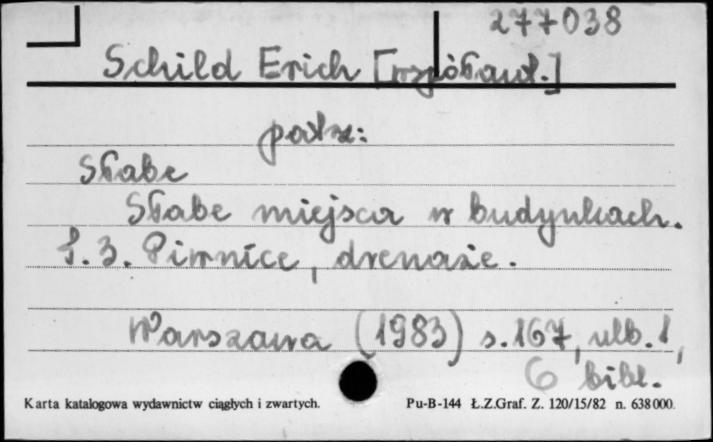 277038
Schild Erich [współaut.]
patrz:
Słabe
Słabe miejsca w budynkach.
T. 3. Piwnice, drenaże.
Warszawa (1983) s. 167, nlb. 1,
bibl.
Karta katalogowa wydawnictw ciągłych i zwartych. Pu-B-144 Ł.Z.Graf. Z. 120/15/82 n. 638000.